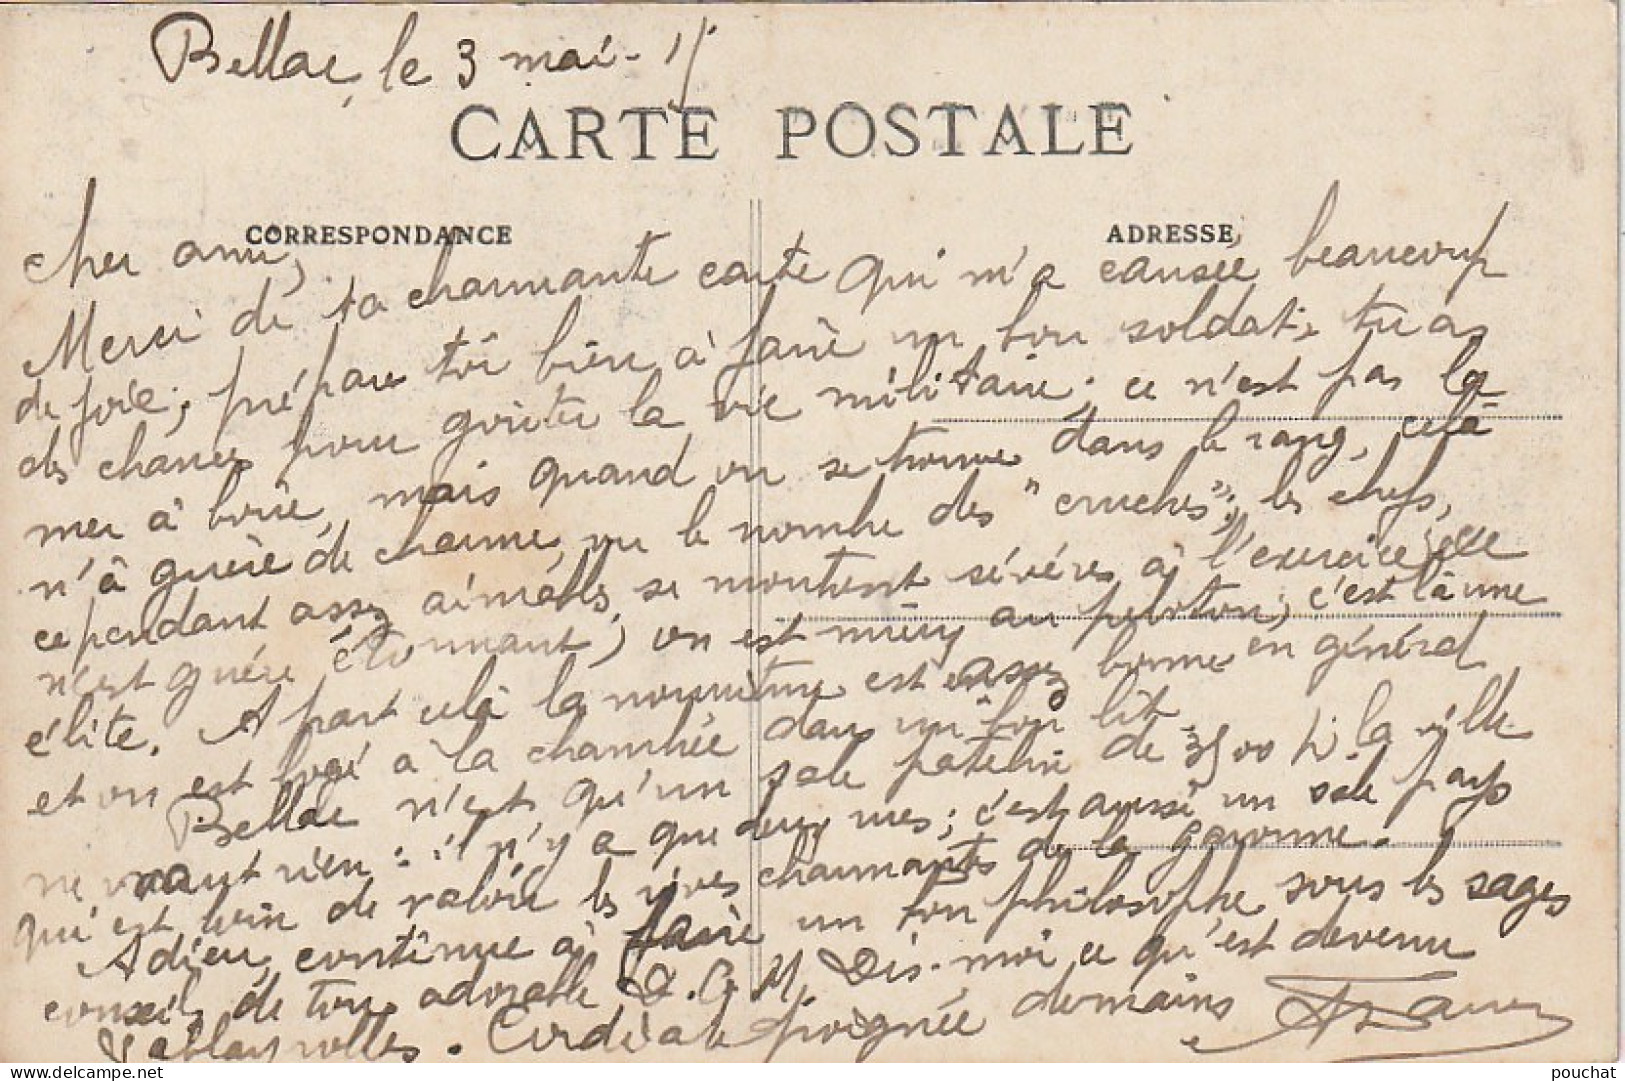 Bellac, le 3 mai - 15
CARTE POSTALE
CORRESPONDANCE
ADRESSE
Cher ami,
Merci de ta charmante carte qui m'a causée beaucoup
de joie; prépare toi bien à faire un bon soldat; tu as
des chances pour goûter la vie militaire; ce n'est pas la
mer à boire, mais quand on se trouve dans le rang, celà
n'à guère de charme, vu le nombre des "cruches"; les chefs,
cependant assez aimables, se montrent sévères à l'exercice; elle
n'est guère étonnant; on est mieux au peloton; c'est là une
élite. A part celà la nourriture est assez bonne en général
et on est logé à la chambrée dans un bon lit.
Bellac n'est qu'un sale patelin de 3500 h. la ville
ne vaut rien: il n'y a que deux rues; c'est aussi un sale pays
qui est loin de valoir les rives charmantes de la Garonne.
Adieu, continue à faire un bon philosophe sous les sages
conseils de ton adorable D. G. M. Dis-moi ce qu'est devenu
Cordiale poignée de mains
pouchat